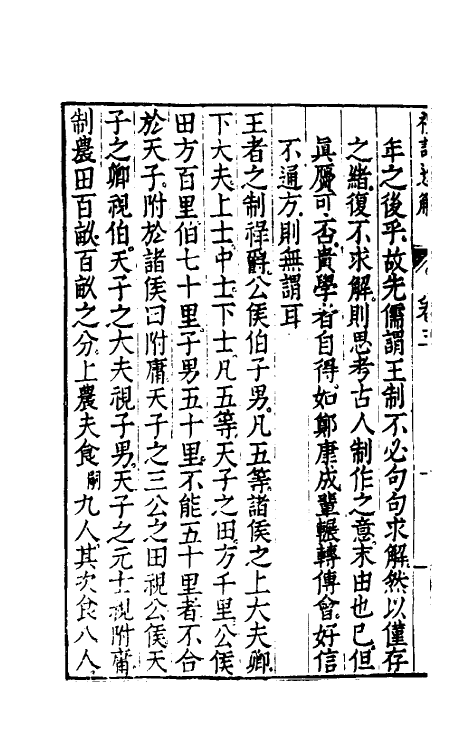 禮記通解
卷五
年之後乎故先儒謂王制不必句句求解然以僅存
之緒復不求解則思考古人制作之意末由也已但
眞贗可否貴學者自得如鄭康成輩輾轉傅會好信
不通方則無謂耳
王者之制祿爵公侯伯子男凡五等諸侯之上大夫卿
下大夫上士中士下士凡五等天子之田方千里公侯
田方百里伯七十里子男五十里不能五十里者不合
於天子附於諸侯曰附庸天子之三公之田視公侯天
子之卿視伯天子之大夫視子男天子之元士視附庸
制農田百畝百畝之分上農夫食嗣九人其次食八人